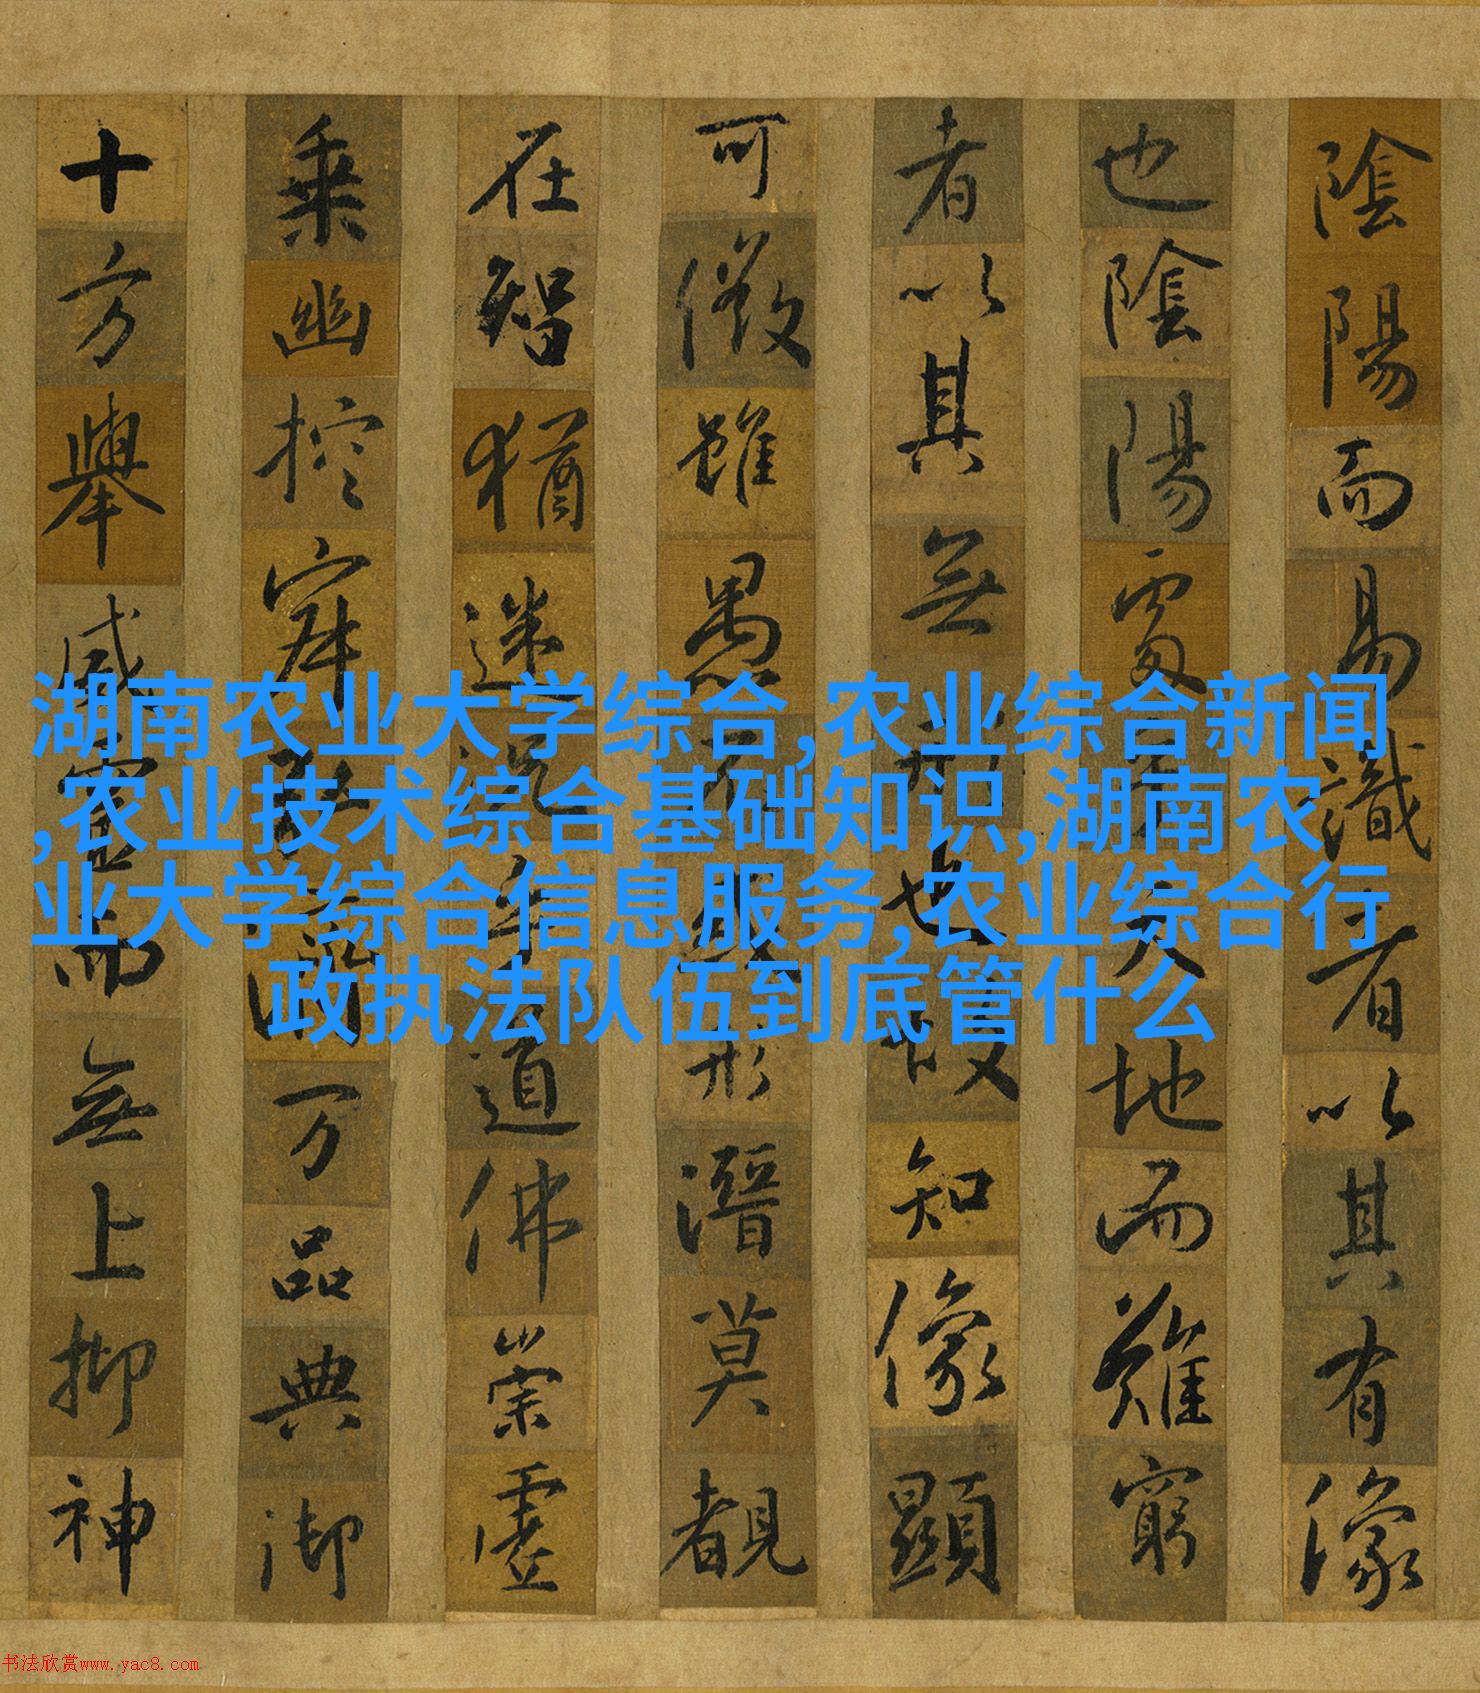 陰陽而易識者以其有像
也陰陽處乎天地而難窮
者以其無形也故知像顯
可徵雖愚不惑形潛莫覩
在智猶迷況乎道佛崇虛
乘幽控寂弘濟万品典御
十方舉威靈而無上抑神
湖南农业大学综合,农业综合新闻
,农业技术综合基础知识,湖南农
业大学综合信息服务,农业综合行
政执法队伍到底管什么
书法欣赏www.yac8.com